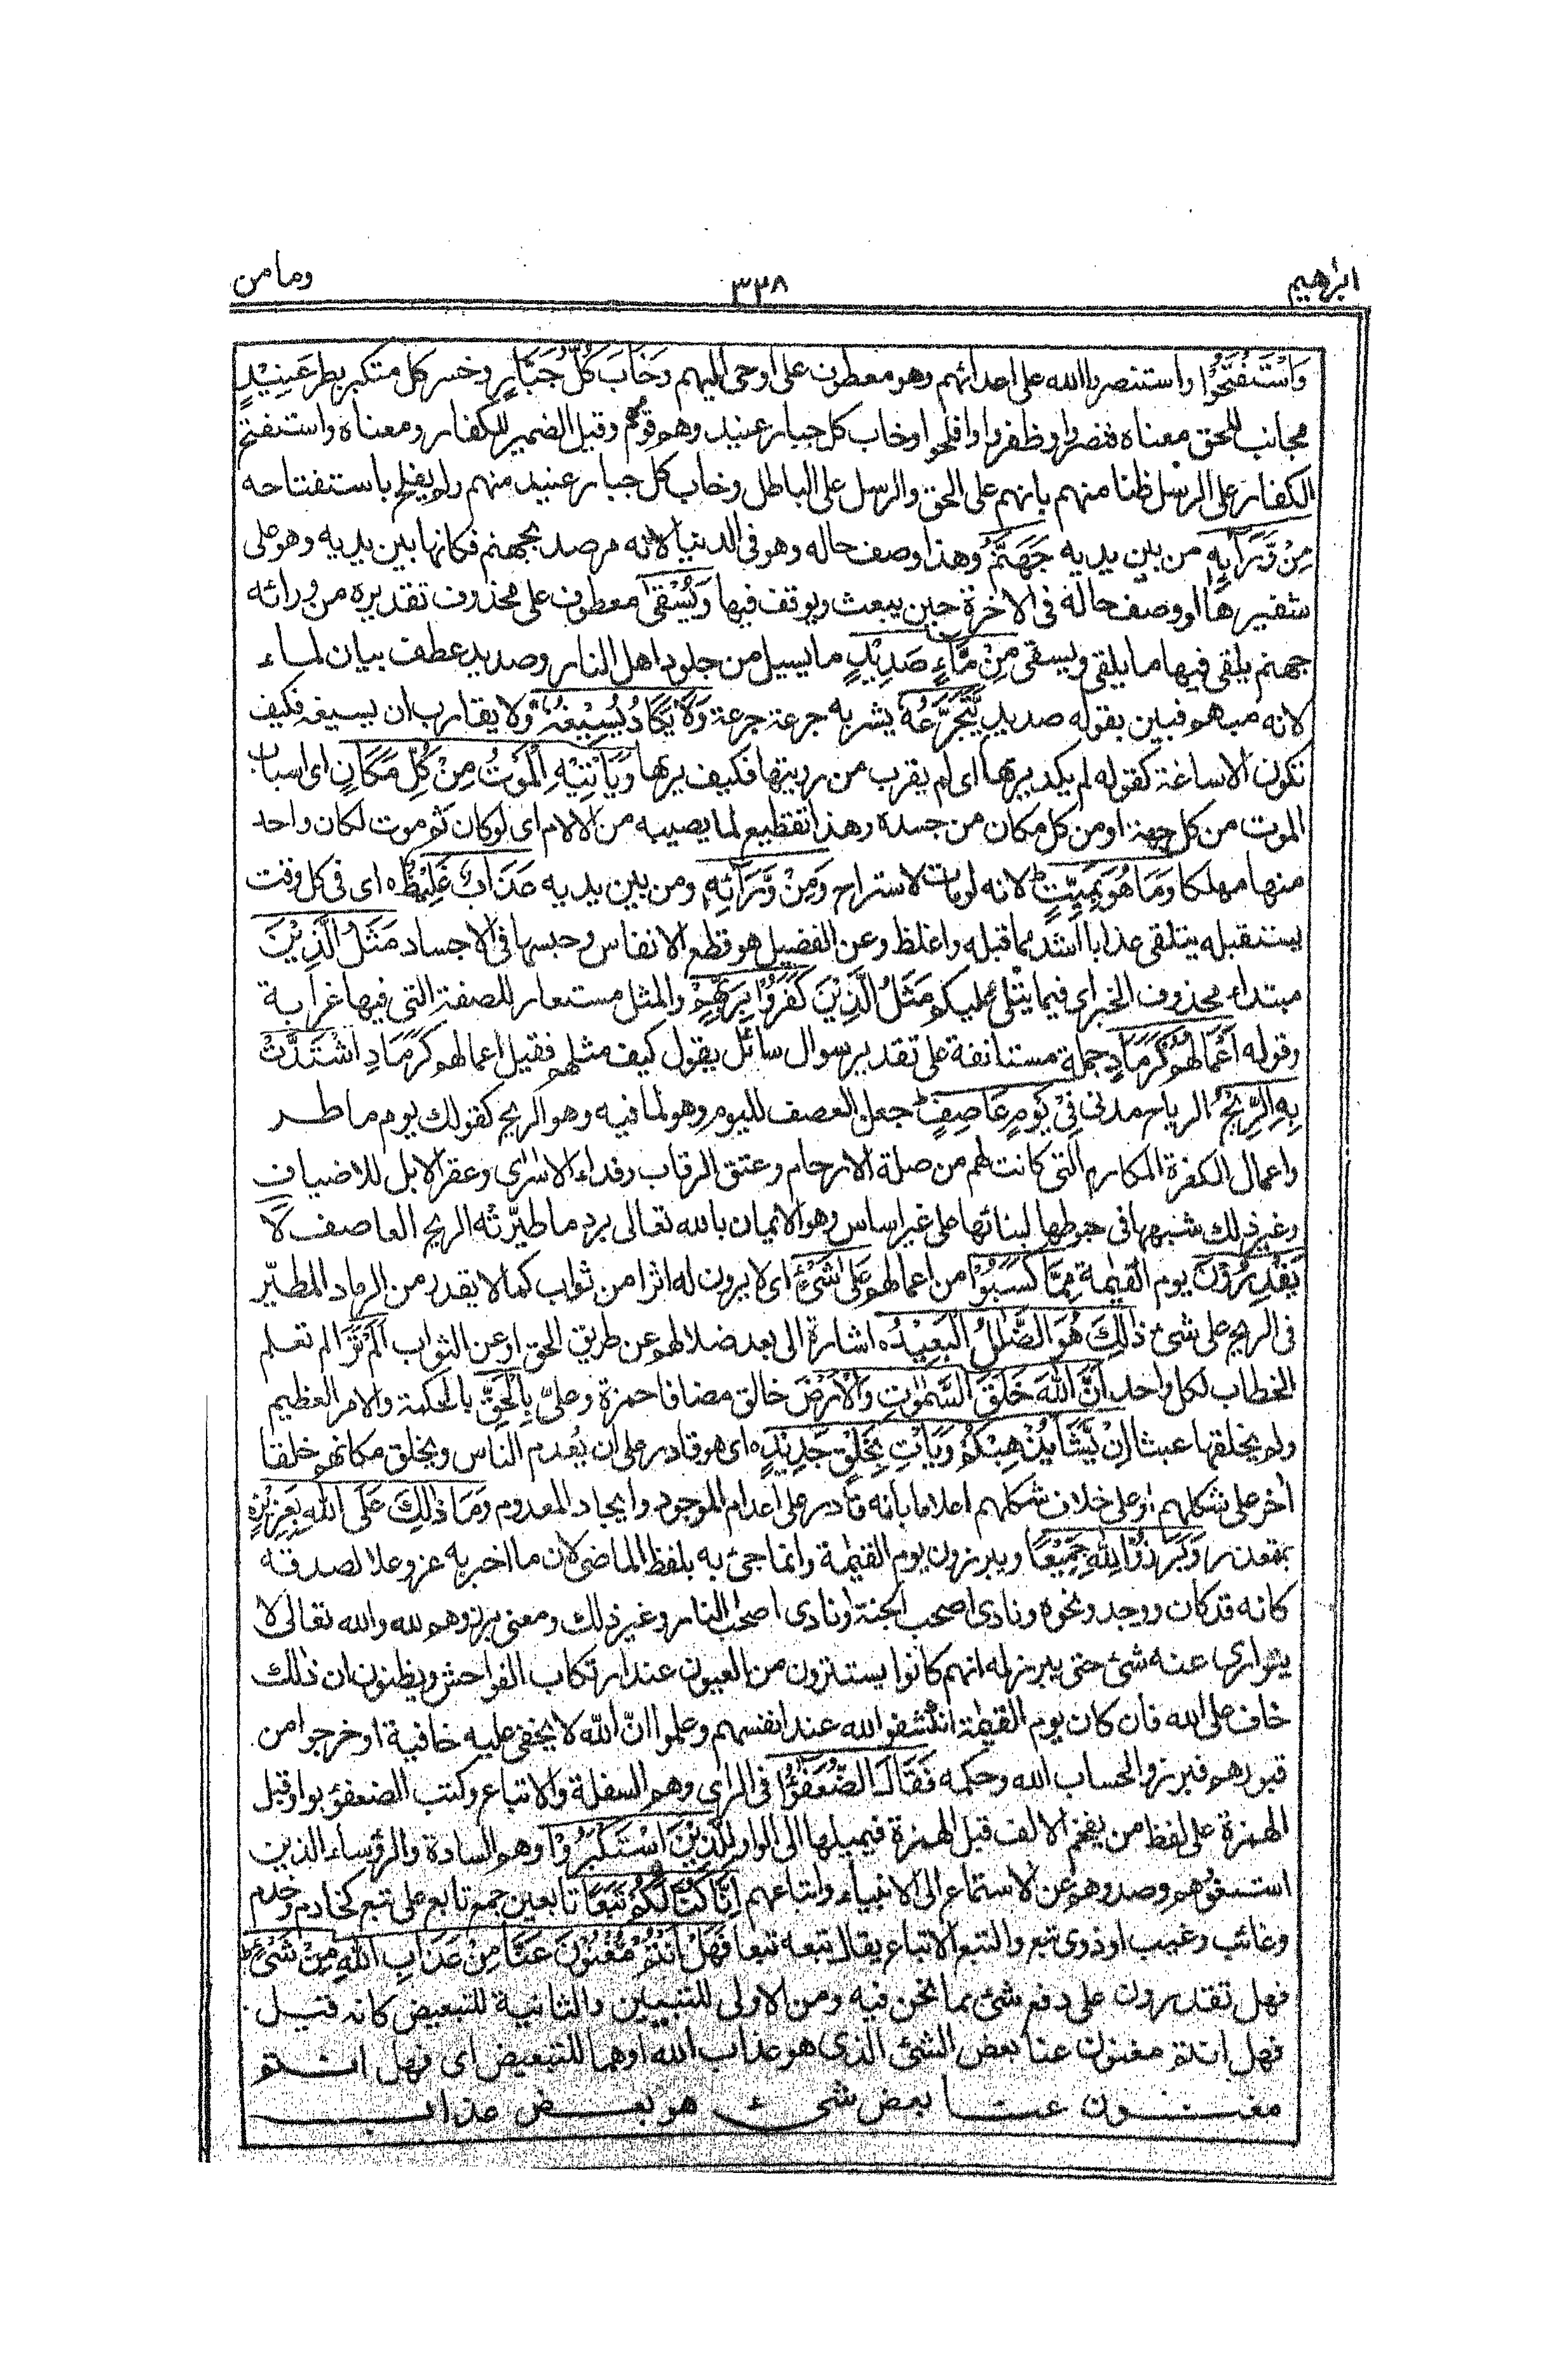 ابراهيم ٣٣٨ وما من
وَاسْتَفْتَحُوْا واستنصروا الله على اعدائهم وهو معطوف على اوحى اليهم وَخَابَ كُلُّ جَبَّارٍ وخسر كل متكبر بطر عَنِيْدٍ
مجانب للحق معناه فنصروا وظفروا وافلحوا وخاب كل جبار عنيد وهو قومهم وقيل الضمير للكفار ومعناه واستفتح
الكفار على الرسل ظنا منهم بانهم على الحق والرسل على الباطل وخاب كل جبار عنيد منهم ولم يفلح باستفتاحه
مِنْ وَّرَآئِهٖ من بين يديه جَهَنَّمُ وهذا وصف حاله وهو فى الدنيا لانه مرصد بجهنم فكانها بين يديه وهو على
شفيرها او وصف حاله فى الاخرة حين يبعث ويوقف فيها وَيُسْقٰى معطوف على محذوف تقديره من ورائه
جهنم يلقى فيها ما يلقى ويسقى مِنْ مَّآءٍ صَدِيْدٍ ما يسيل من جلود اهل النار وصديد عطف بيان لماء
لانه مبهم فبين بقوله صديد يَّتَجَرَّعُهٗ يشربه جرعة جرعة وَلَا يَكَادُ يُسِيْغُهٗ ولا يقارب ان يسيغه فكيف
تكون الاساغة كقوله لم يكد يرٰها اى لم يقرب من رويتها فكيف يرٰها وَيَاْتِيْهِ الْمَوْتُ مِنْ كُلِّ مَكَانٍ اى اسباب
الموت من كل جهة او من كل مكان من جسده وهذا تفظيع لما يصيبه من الالام اى لو كان ثم موت لكان واحد
منها مهلكا وَمَا هُوَ بِمَيِّتٍ لانه لو مات لاستراح وَمِنْ وَّرَآئِهٖ ومن بين يديه عَذَابٌ غَلِيْظٌ اى فى كل وقت
يستقبله يتلقى عذابا اشد مما قبله واغلظ وعن الفضيل هو قطع الانفاس وحبسها فى الاجساد مَثَلُ الَّذِيْنَ
مبتداء محذوف الخبر اى فيما يتلى عليكم مَثَلُ الَّذِيْنَ كَفَرُوْا بِرَبِّهِمْ والمثل مستعار للصفة التى فيها غرابة
وقوله اَعْمَالُهُمْ كَرَمَادٍ جملة مستانفة على تقدير سوال سائل يقول كيف مثلهم فقيل اعمالهم كَرَمَادِ اشْتَدَّتْ
بِهِ الرِّيْحُ الرياح مدنى فِىْ يَوْمٍ عَاصِفٍ جعل العصف لليوم وهو لما فيه وهو الريح كقولك يوم ماطر
واعمال الكفرة المكارم التى كانت لهم من صلة الارحام وعتق الرقاب وفداء الاسرى وعقر الابل للاضياف
وغير ذلك شبهها فى حبوطها لبنائها على غير اساس وهو الايمان بالله تعالى برماد طيّرته الريح العاصف لَا
يَقْدِرُوْنَ يوم القيٰمة مِمَّا كَسَبُوْا من اعمالهم عَلٰى شَىْءٍ اى لا يرون له اثرا من ثواب كما لا يقدر من الرماد المطيّر
فى الريح على شئ ذٰلِكَ هُوَ الضَّلٰلُ الْبَعِيْدُ اشارة الى بعد ضلالهم عن طريق الحق او عن الثواب اَلَمْ تَرَ الم تعلم
الخطاب لكل واحد اَنَّ اللهَ خَلَقَ السَّمٰوٰتِ وَالْاَرْضَ خالق مضافا حمزة وعلىّ بِالْحَقِّ بالحكمة والامر العظيم
ولم يخلقها عبثا اِنْ يَّشَاْ يُذْهِبْكُمْ وَيَاْتِ بِخَلْقٍ جَدِيْدٍ اى هو قادر على ان يُعدم الناس ويخلق مكانهم خلقا
اخر على شكلهم او على خلاف شكلهم اعلاما بانه قادر على اعدام الموجود وايجاد المعدوم وَمَا ذٰلِكَ عَلَى اللهِ بِعَزِيْزٍ
بمتعذر وَبَرَزُوْا لِلّٰهِ جَمِيْعًا ويبرزون يوم القيٰمة وانما جئ به بلفظ الماضى لان ما اخبر به عز وعلا لصدقه
كانه قد كان ووجد ونحوه ونادى اصحب الجنة ونادى اصحب النار وغير ذلك ومعنى برزوهم لله والله تعالى لا
يتوارى عنه شئ حتى يبرز له انهم كانوا يستترون من العيون عند ارتكاب الفواحش ويظنون ان ذلك
خاف على الله فان كان يوم القيٰمة انكشفوا لله عند انفسهم وعلموا انّ الله لا يخفى عليه خافية او خرجوا من
قبورهم فبرزوا لحساب الله وحكمه فَقَالَ الضُّعَفٰٓؤُا فى الراى وهم السفلة والاتباع وكتب الضعفؤ بواو قبل
الهمزة على لفظ من يفخم الالف قبل الهمزة فيميلها الى الواو لِلَّذِيْنَ اسْتَكْبَرُوْا وهم السادة والرؤساء الذين
استغووهم وصدوهم عن الاستماع الى الانبياء واتباعهم اِنَّا كُنَّا لَكُمْ تَبَعًا تابعين جمع تابع على تبع كخادم وخدم
وغائب وغيب او ذوى تبع والتبع الاتباع يقال تبعه تبعا فَهَلْ اَنْتُمْ مُّغْنُوْنَ عَنَّا مِنْ عَذَابِ اللهِ مِنْ شَىْءٍ
فهل تقدرون على دفع شئ مما نحن فيه ومن الاولى للتبيين والثانية للتبعيض كانه قيل
فهل انتم مغنون عنا بعض الشئ الذى هو عذاب الله او هما للتبعيض اى فهل انتم
مغنون عنا بعض شئ هو بعض عذاب